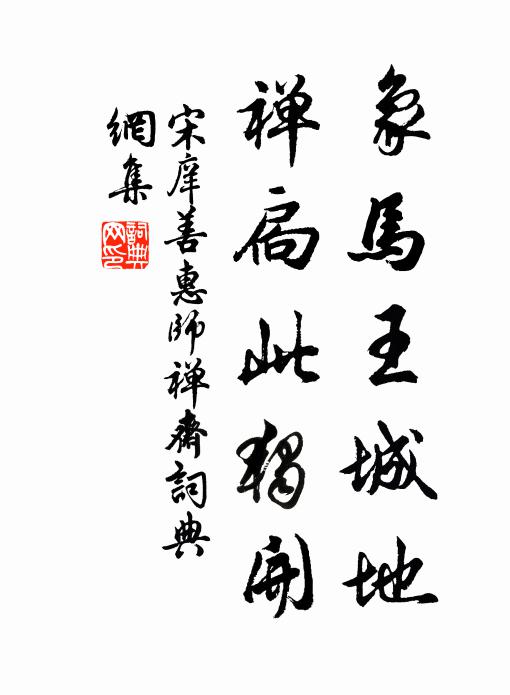 象馬王城地
禅扃此獨開
宋庠善惠師禅齋詞典
網集
詞典
网印